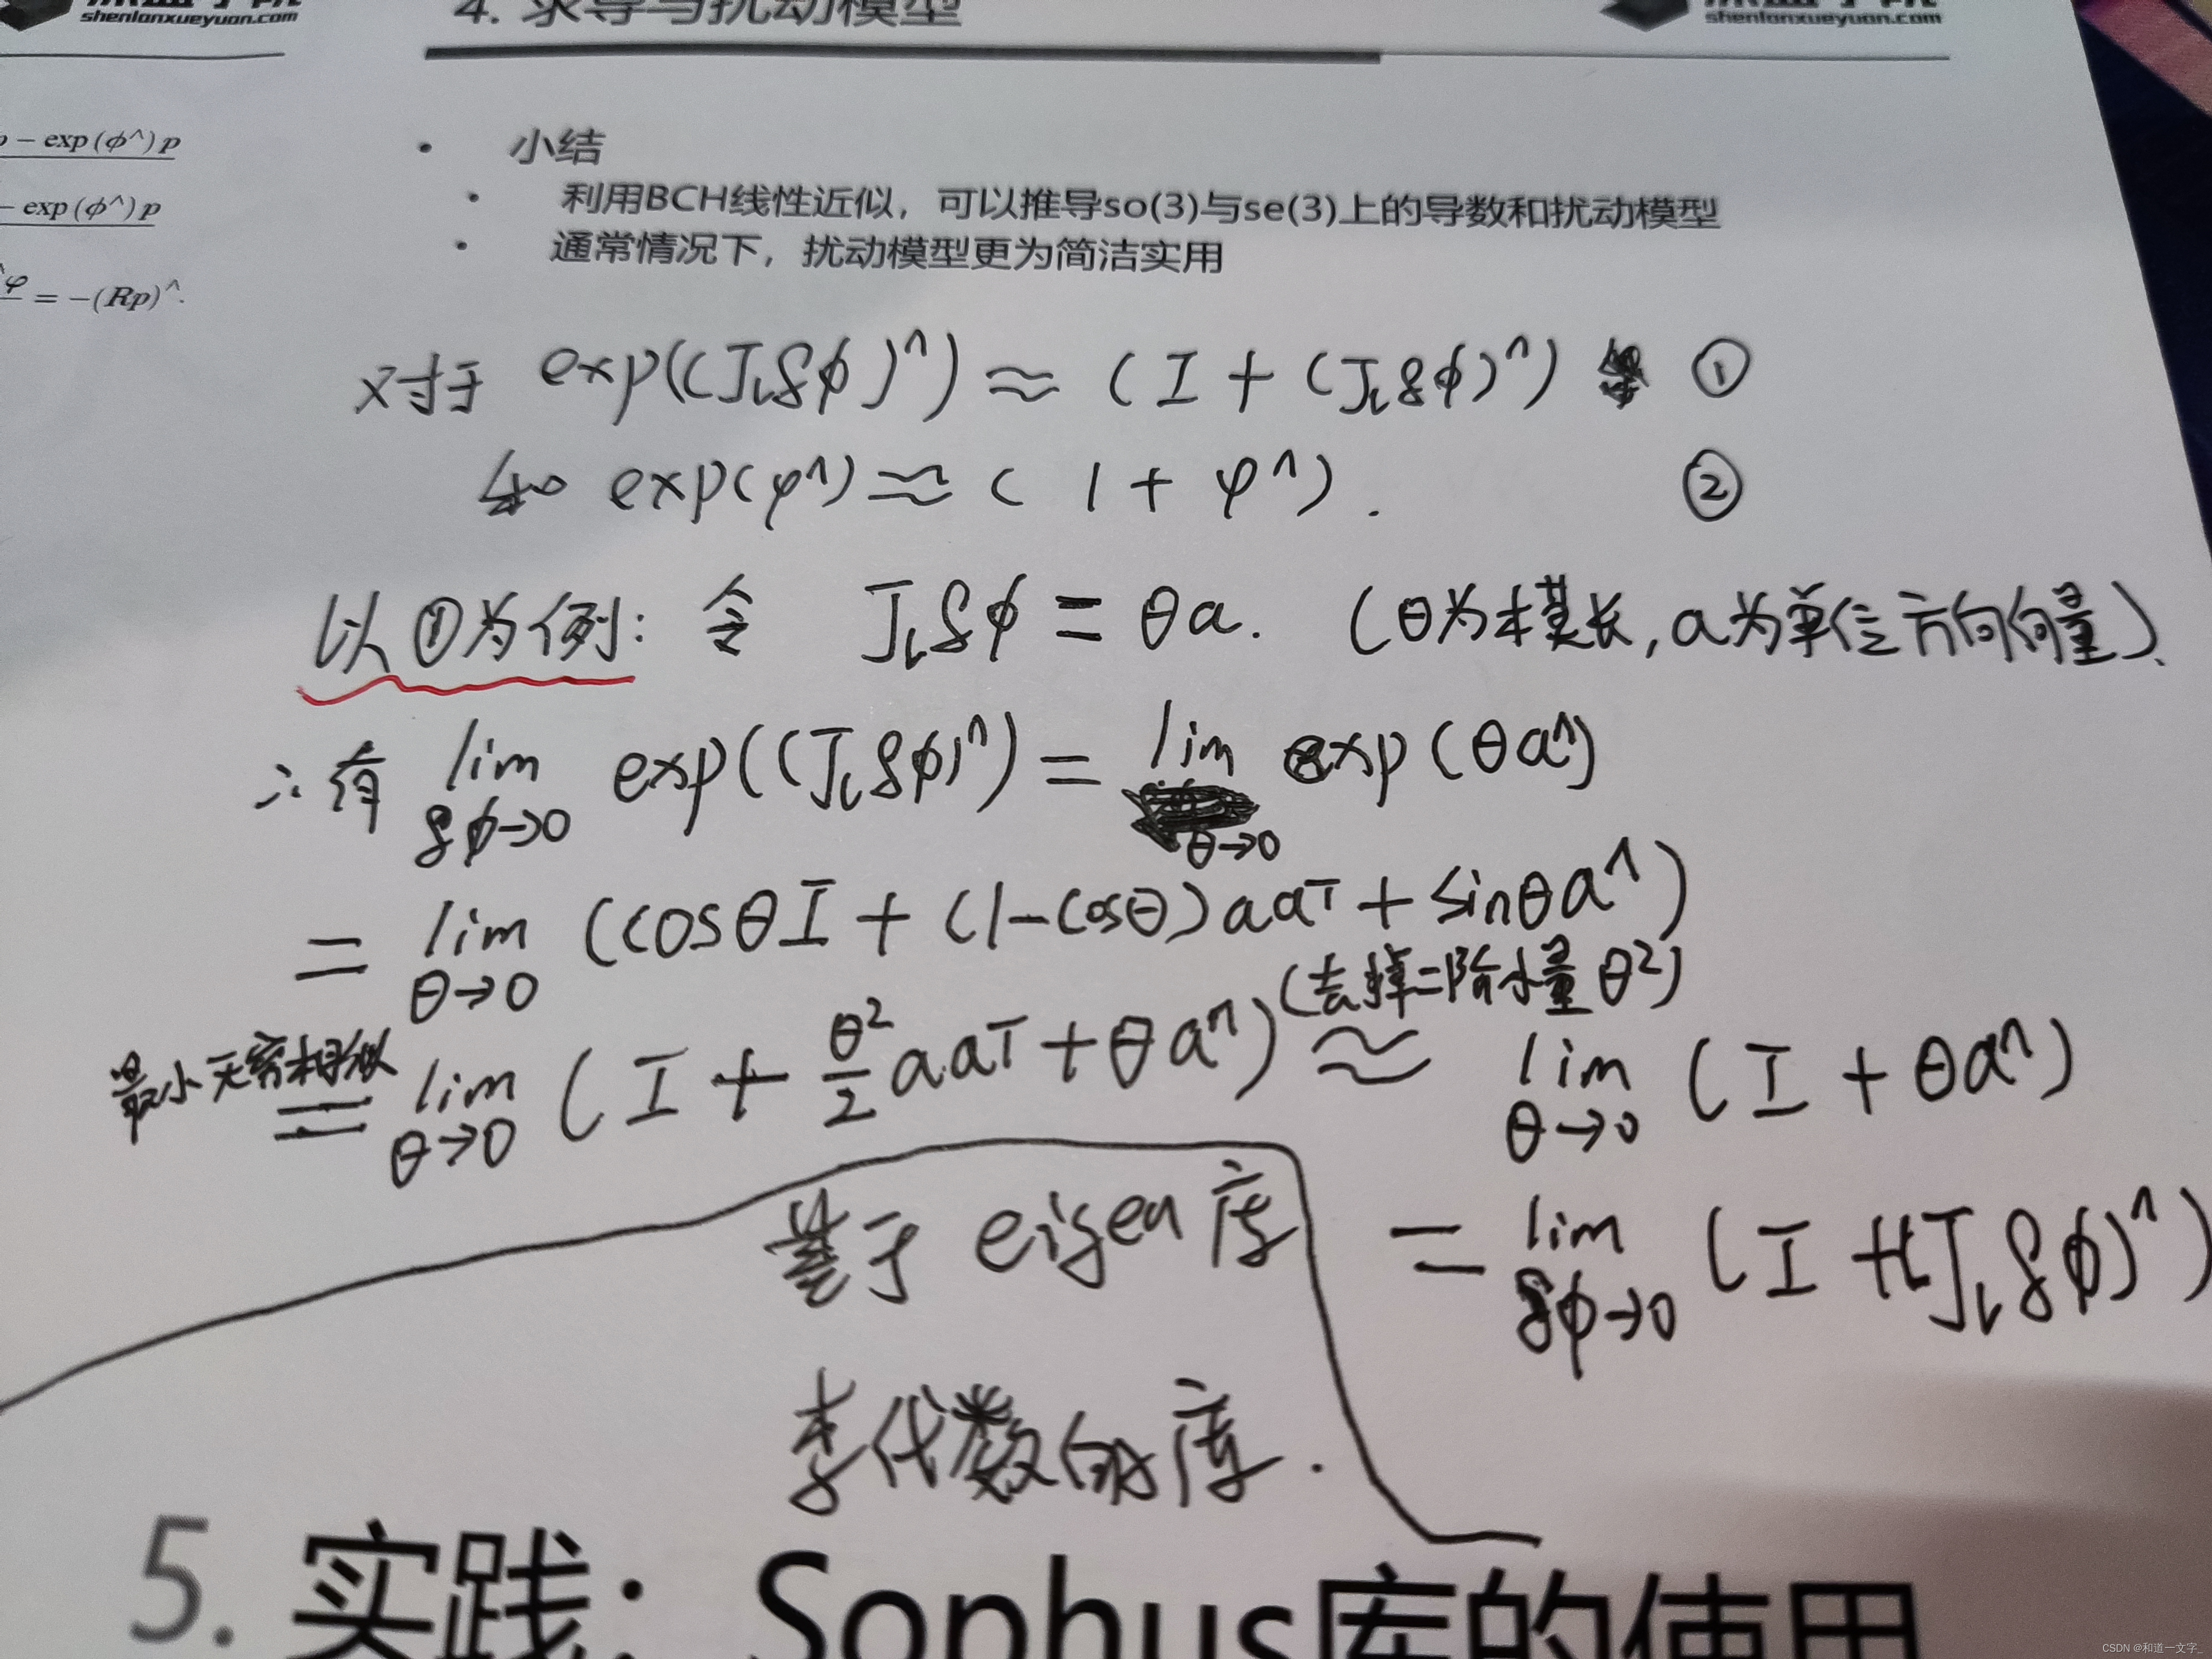 shenlanxueyuan.com
4. 求导与扰动模型
shenlanxueyuan.com
− exp(ϕ^)p
− exp(ϕ^)p
φ = −(Rp)^.
• 小结
• 利用BCH线性近似，可以推导so(3)与se(3)上的导数和扰动模型
• 通常情况下，扰动模型更为简洁实用
对于 exp((Jlδϕ)^) ≈ (I + (Jlδϕ)^) ①
和 exp(φ^) ≈ ( 1 + φ^ ) . ②
以①为例: 令 Jlδϕ = θa. (θ为模长, a为单位方向向量).
∴有 lim δϕ→0 exp((Jlδϕ)^) = lim θ→0 exp(θa^)
= lim θ→0 (cosθI + (1-cosθ)aaT + sinθa^)
(去掉二阶小量θ²)
无穷相似
= lim θ→0 (I + θ²/2 aaT + θa^) ≈ lim θ→0 (I + θa^)
= lim δϕ→0 (I + (Jlδϕ)^)
基于 eigen 库
李代数的库.
5. 实践：Sophus库的使用
CSDN @和道一文字